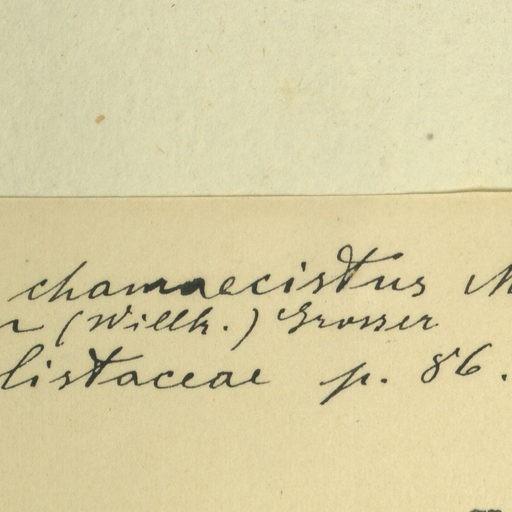 chamaecistus M
r (Willk.) Grosser
listaceae p. 86.